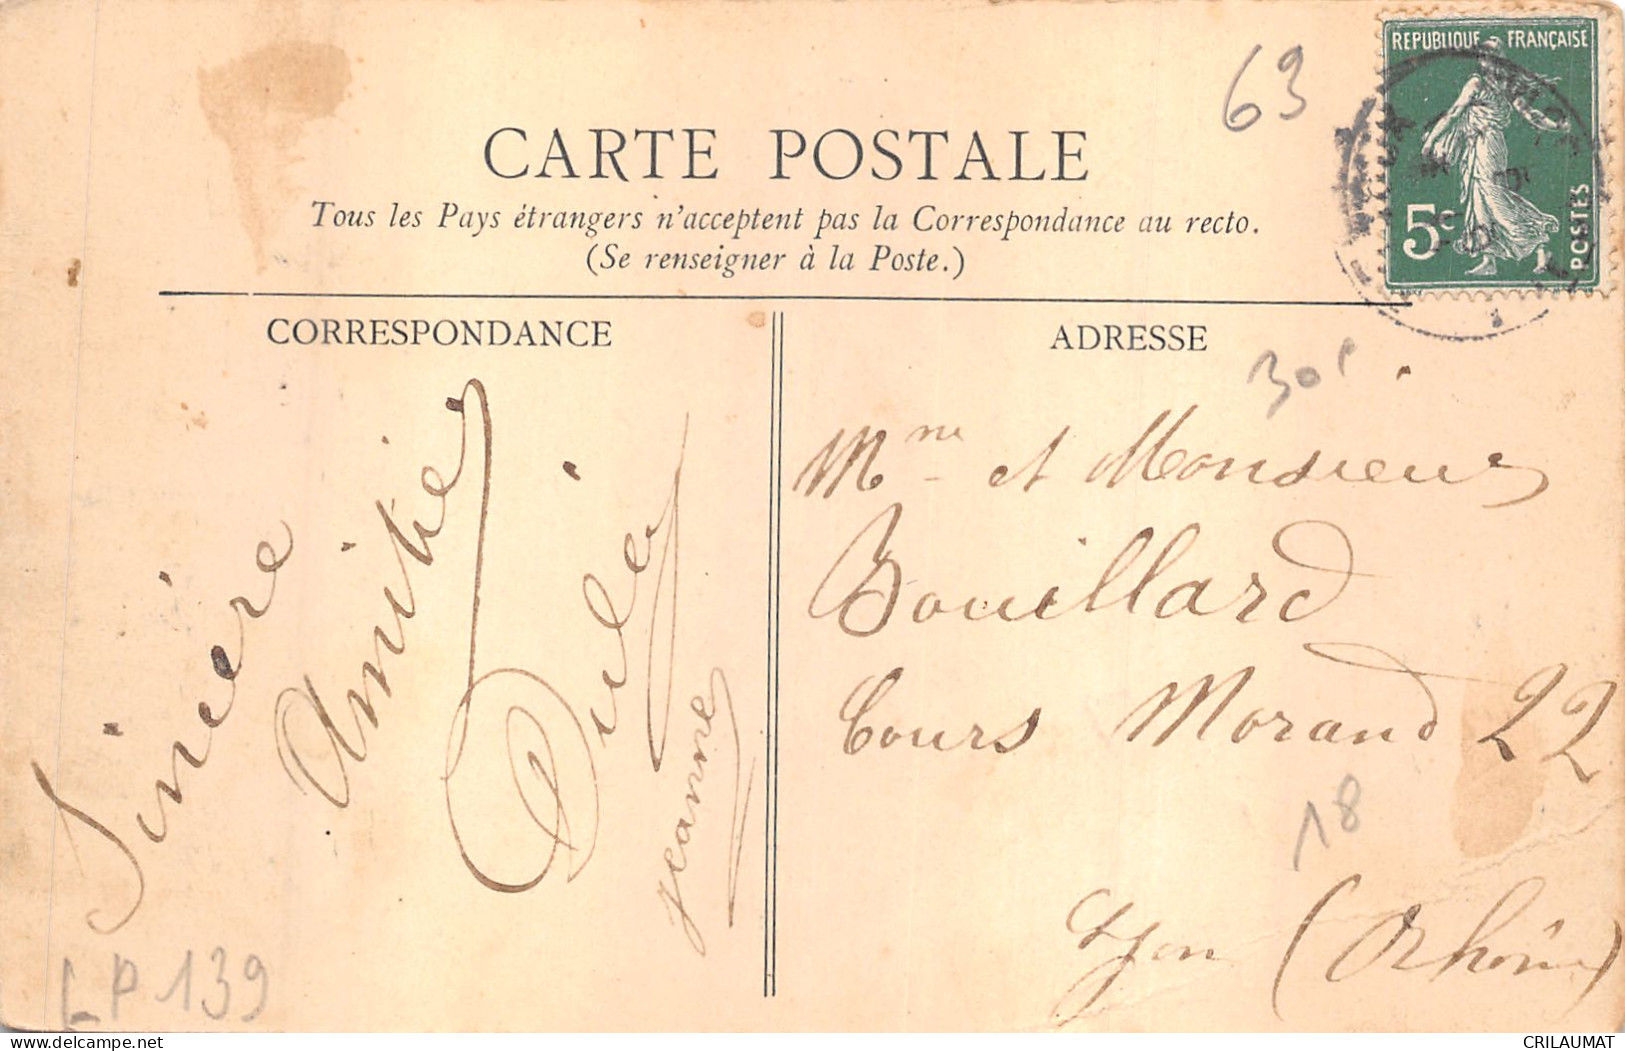 63
REPUBLIQUE FRANÇAISE
5c
POSTES
CARTE POSTALE
Tous les Pays étrangers n'acceptent pas la Correspondance au recto.
(Se renseigner à la Poste.)
CORRESPONDANCE
ADRESSE
Sincère
Amitié
Jeanne
LP 139
30
Mme et Monsieur
Bouillard
Cours Morand 22
18
Lyon (Rhône)
delcampe.net
CRILAUMAT